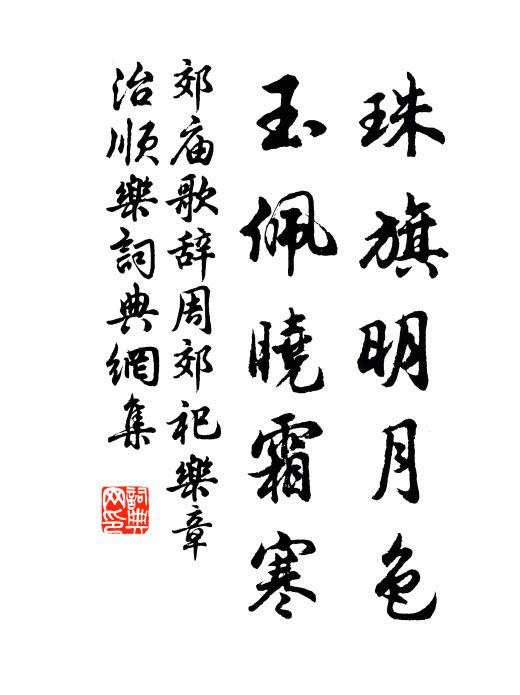 珠旗明月色
玉佩曉霜寒
郊庙歌辞周郊祀樂章
治順樂詞典網集
詞典
网印